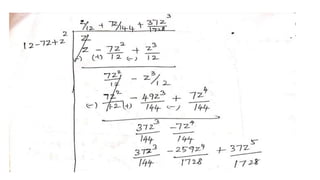 z/12 + 7z²/144 + 37z³/1728
12-7z+z² | z
z - 7z²/12 + z³/12
(-) (+) (-)
7z²/12 - z³/12
7z²/12 - 49z³/144 + 7z⁴/144
(-) (+) (-)
37z³/144 - 7z⁴/144
37z³/144 - 259z⁴/1728 + 37z⁵/1728